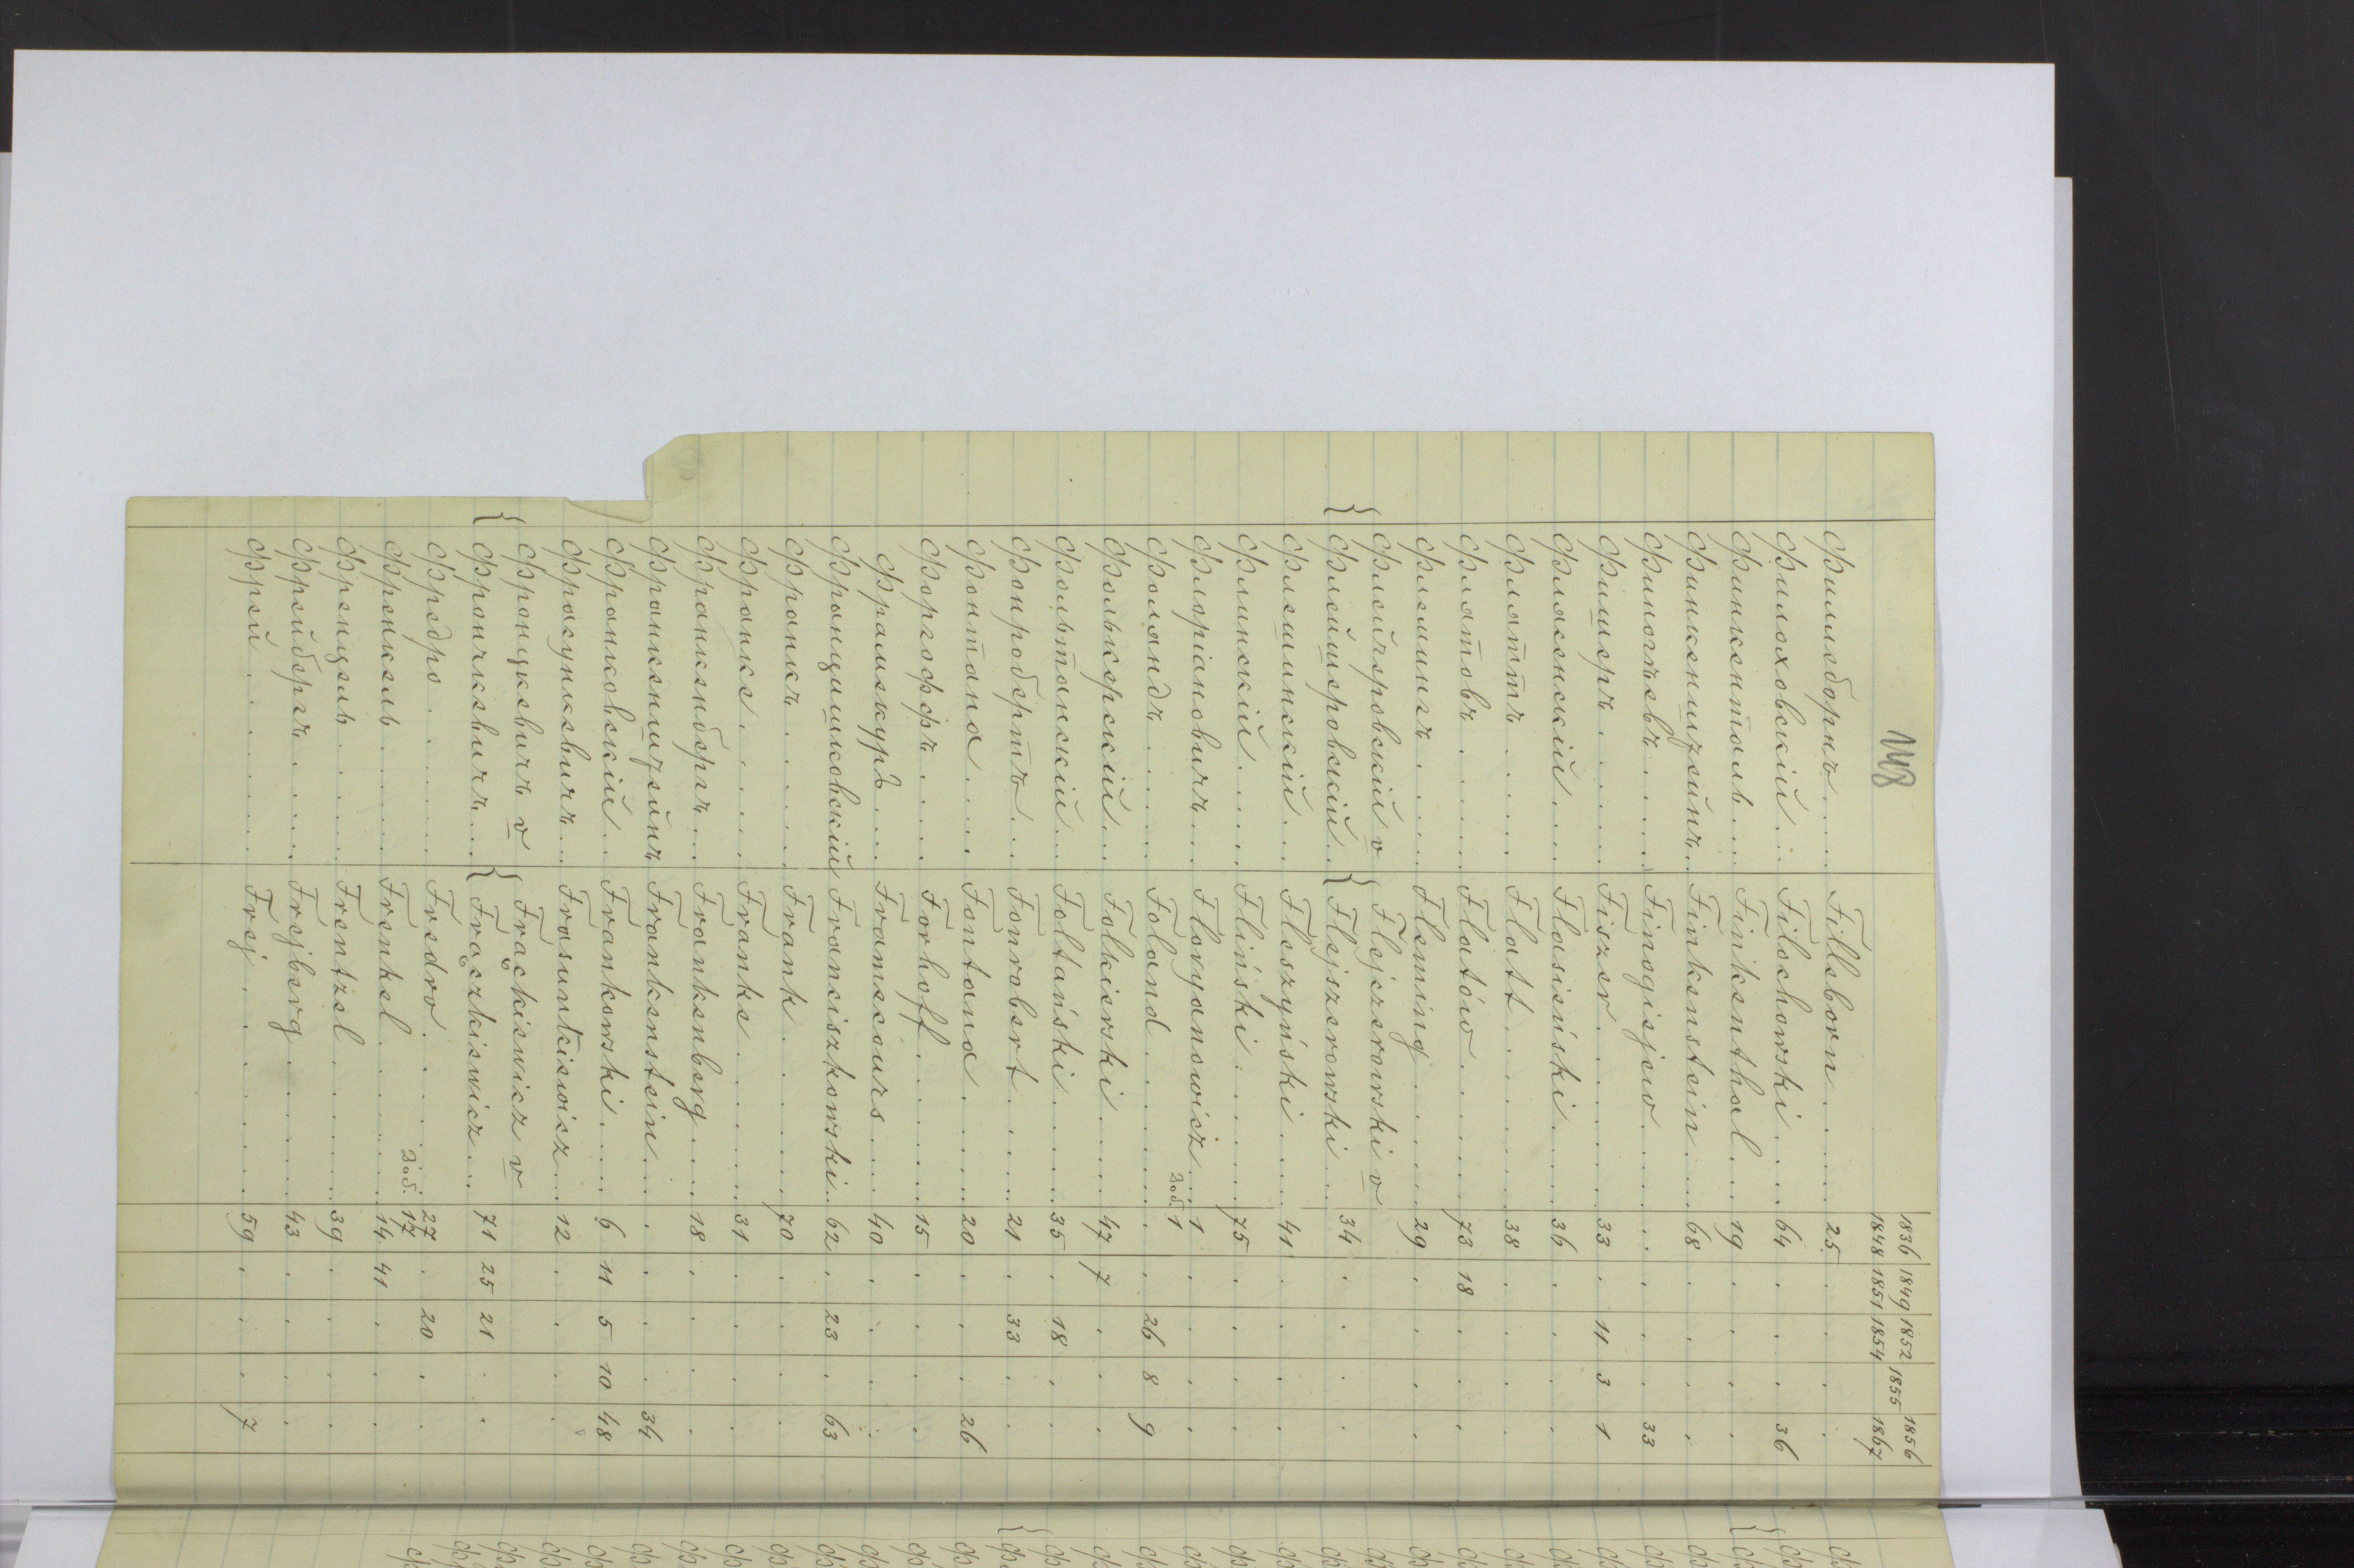 148
1836 1849 1852 1855 1856
1848 1851 1854 1867
Филлеборнъ . . . . Filleborn . . . . 25 . . . .
Филоховскій . . . Filochowski . . . 64 . . . 36
Финкенталь . . . Finkenthal . . . 19 . . . .
Финкенштейнъ . . Finkenstein . . . 68 . . . .
Финогѣевъ . . . . Finogiejew . . . . . . . 33
Фишеръ . . . . . Fiszer . . . . . 33 . 11 3 1
Фласенскій . . . . Flasieński . . . . 36 . . . .
Флаттъ . . . . . Flatt . . . . . 38 . . . .
Флатовъ . . . . . Flatów . . . . . 73 18 . . .
Флемингъ . . . . Fleming . . . . 29 . . . .
{ Флейчеровскій v { Flejczerowski v
Флейшеровскій . . Flejszerowski . . 34 . . . .
Флешинскій . . . Fleszyński . . . 41 . . . .
Флинскій . . . . Fliński . . . . 75 . . . .
Флоріановичъ . . . Floryanowicz . . . 1 . . . .
Фоландъ . . . . . Foland . . . . . Доб. 1 . 26 8 9
Фолькерскій . . . Folkierski . . . 47 7 . . .
Фольтанскій . . . Foltański . . . 35 . 18 . .
Фонробертъ . . . Fonrobert . . . 21 . 33 . .
Фонтана . . . . Fontana . . . . 20 . . . 26
Форгоффъ . . . . Forhoff . . . . 15 . . . .
Фрамекуръ . . . . Framecours . . . . 40 . . . .
Францишковскій Franciszkowski . . 62 . 23 . 63
Франкъ . . . . . Frank . . . . . 70 . . . .
Франке . . . . . Franke . . . . . 31 . . . .
Франкенбергъ . . . Frankenberg . . . 18 . . . .
Франкенштейнъ Frankenstein . . . . . . . 34
Франковскій . . Frankowski . . . . 6 11 5 10 48
Фрасункевичъ . . . Frasunkiewicz . . 12 . . . .
{ Фронцкевичъ v { Frąckiewicz v
Фрончкевичъ . . . Frączkiewicz . . . 71 25 21 . .
Фредро . . . . . Fredro . . . . Доб. 27 17 . 20 . .
Френкель . . . . Frenkel . . . . 14 41 . . .
Френцель . . . . Frentzel . . . . 39 . . . .
Фрейбергъ . . . . Frejberg . . . . 43 . . . .
Фрей . . . . . . Frej . . . . . . 59 . . . 7